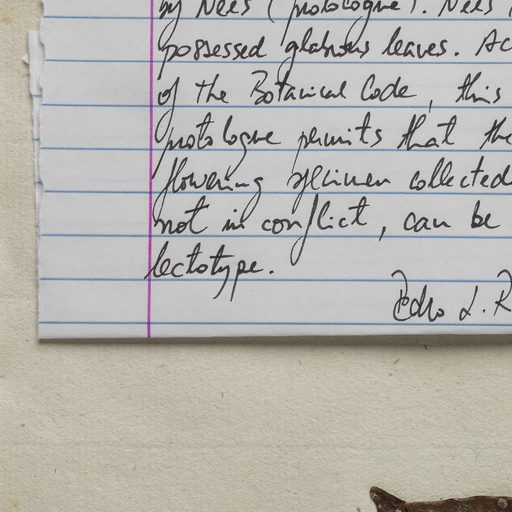 by Nees (protologue). Nees
possessed glabrous leaves. Ac
of the Botanical Code, this
protologue permits that the
flowering specimen collected
not in conflict, can be
lectotype.
Pedro L. R